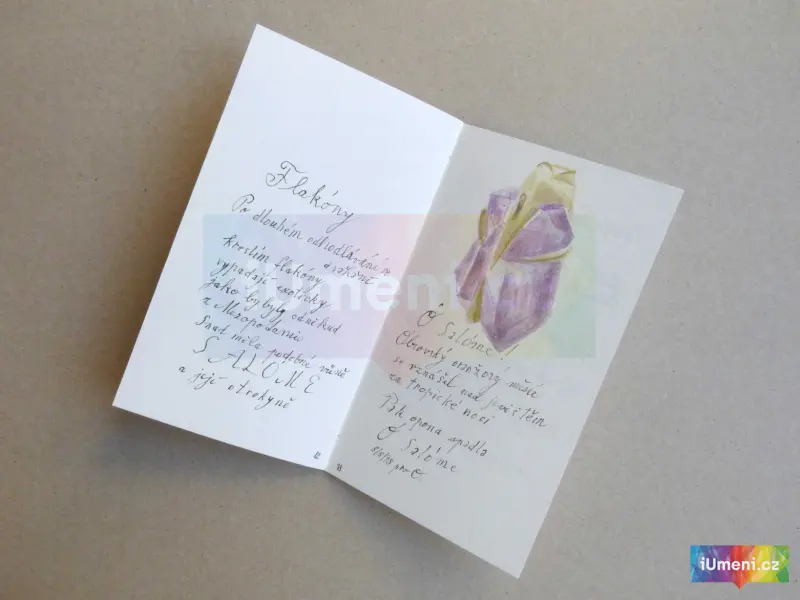 Flakóny
Po dlouhém odhodlávání se
křestím flakóny
vypadají exoticky
jako by byly odněkud
z Mezopotamie
Snad měla podobné vůně
SALOME
a její otrokyně
12
Ó Salóme!!
Obrovský oranžový měsíc
se vznášel nad jevištěm
za tropické noci
Pak opona spadla
Ó Salóme
13
iUmeni.cz
iUmeni.cz